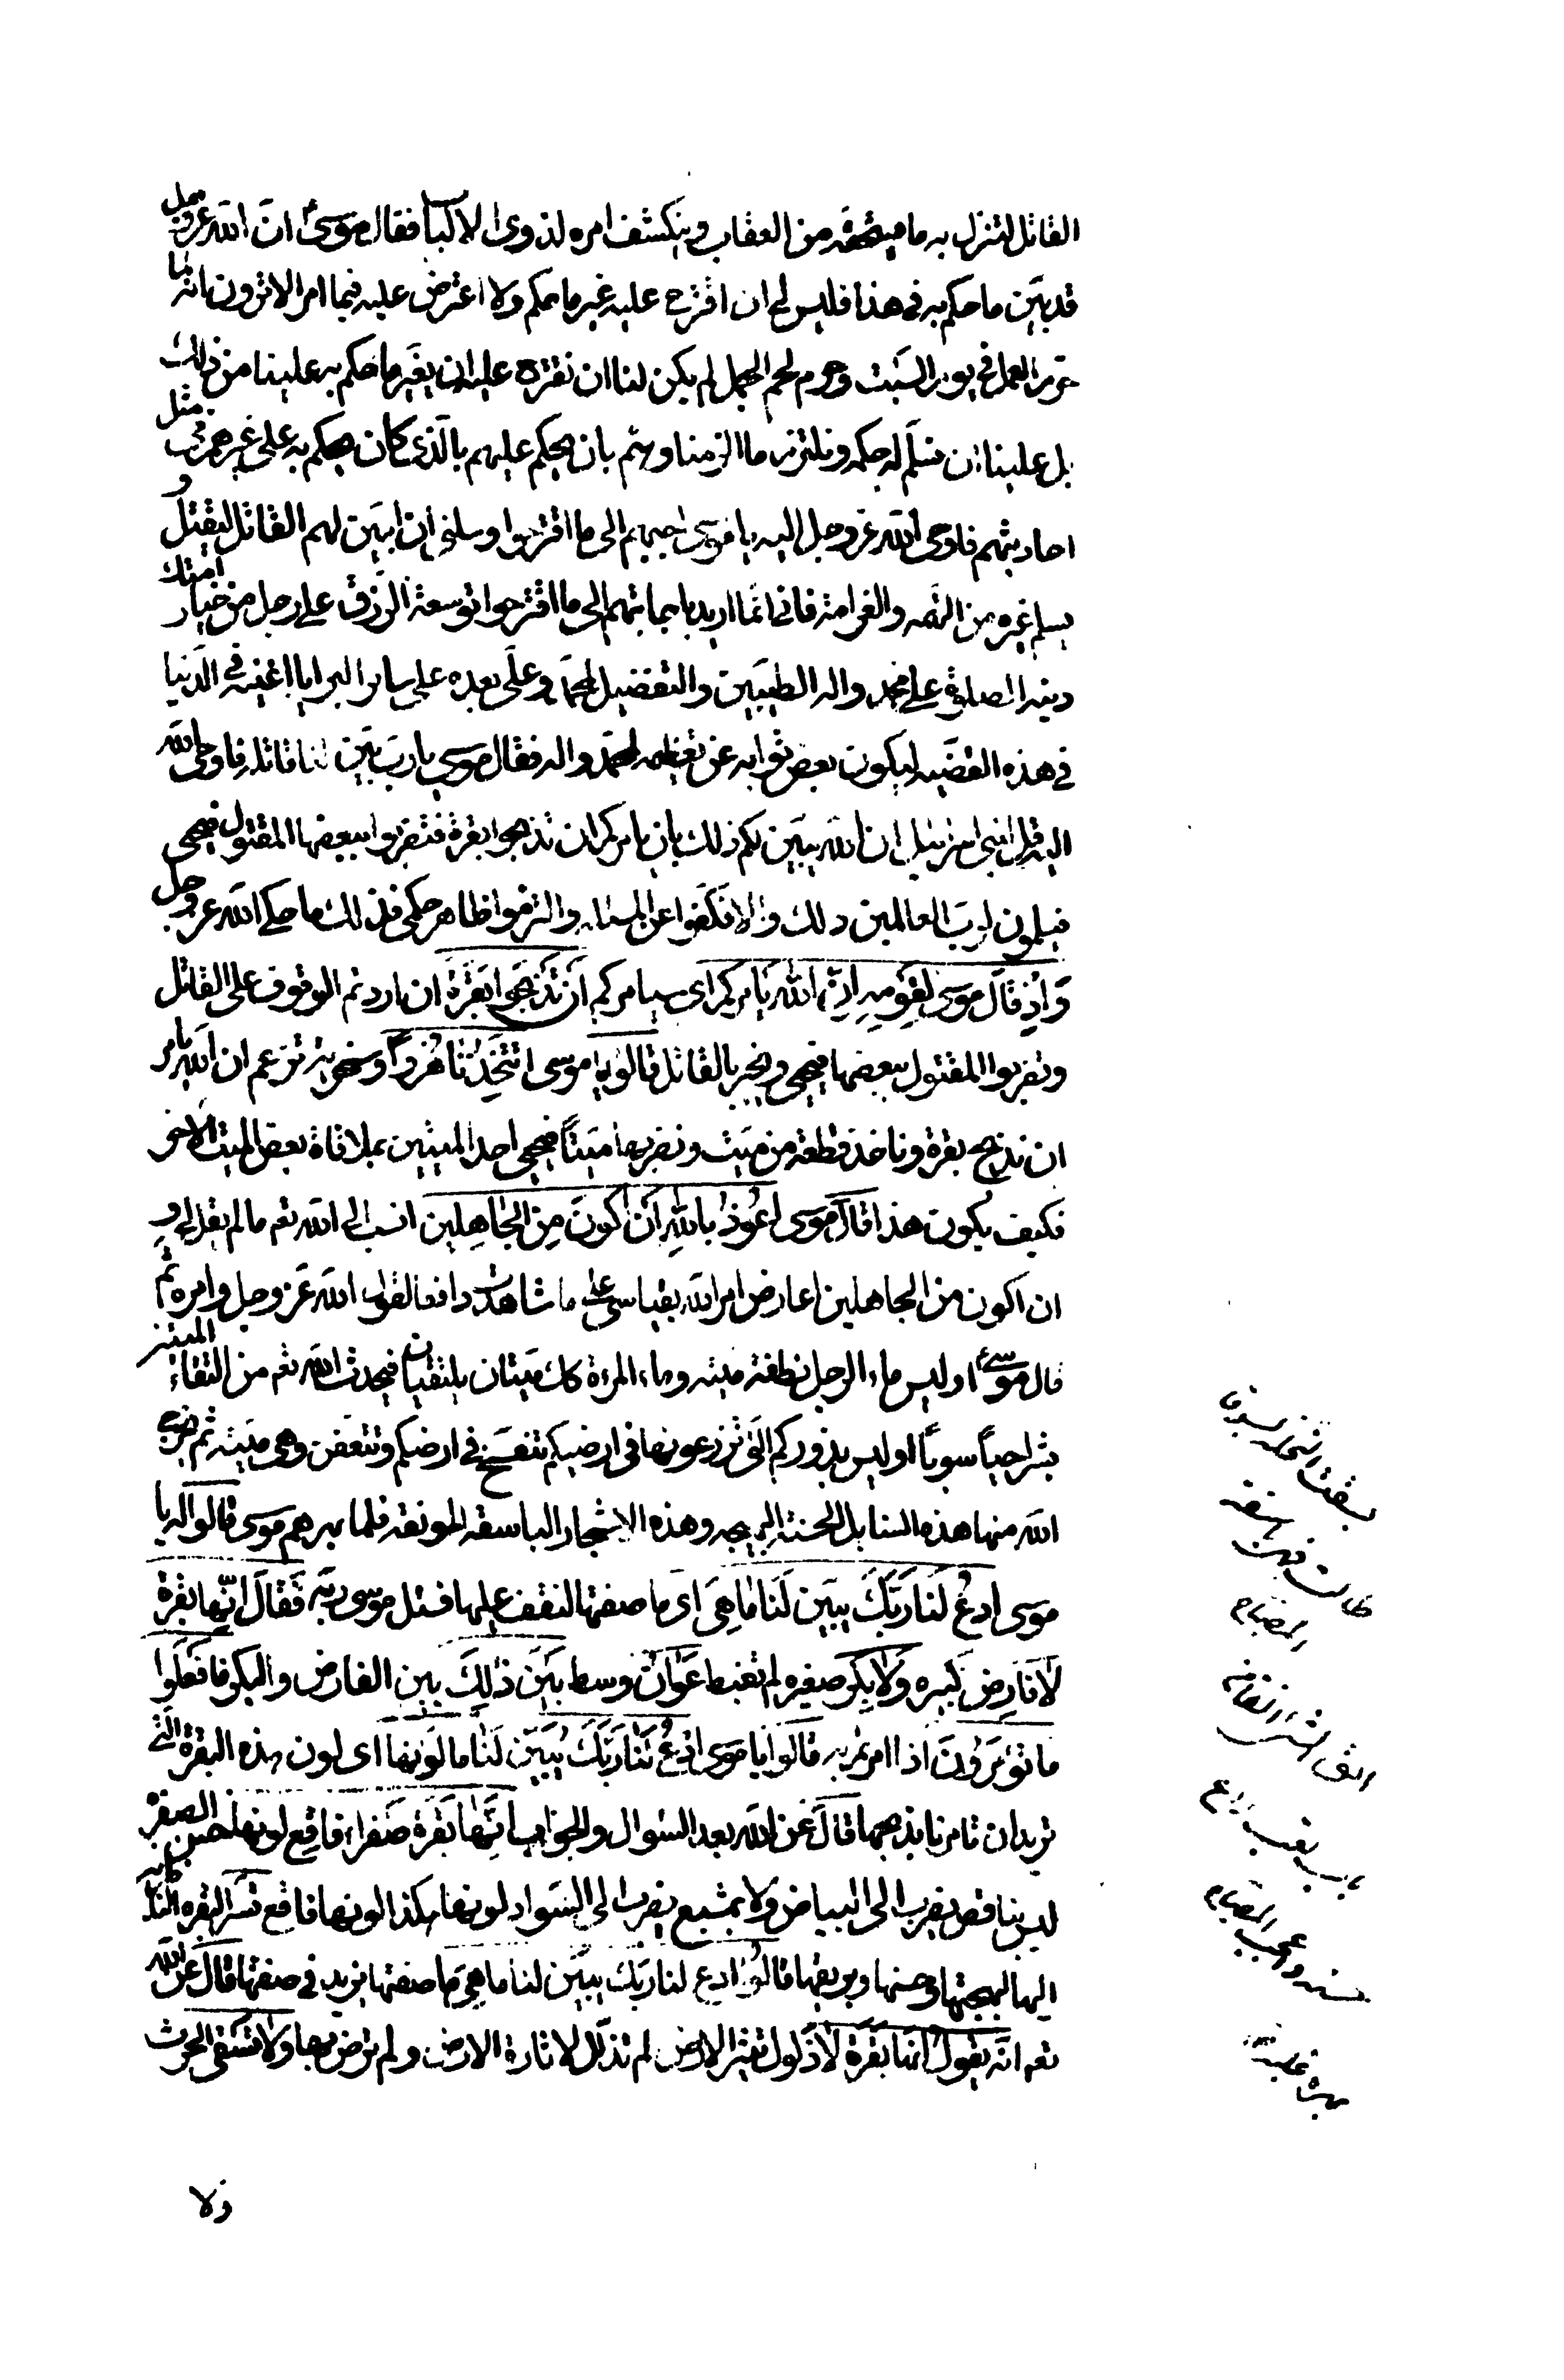 القاتل لتنزل به ما يستحقه من العقاب وينكشف امره لذوي الالباب فقال موسى ان الله عز وجل
قد بين ما حكم به في هذا فليس لي ان اقترح عليه غير ما حكم ولا اعترض عليه فيما امر الا ترون انه لما
حرم العمل في يوم السبت وحرم لحم الجمل لم يكن لنا ان نقترح عليه ان يغير ما حكم به علينا من ذلك
بل علينا ان نسلم له حكمه ونلتزم ما الزمنا وهم بان يحكم عليهم بالذي كان يحكم به على غيرهم في مثل
حادثتهم فاوحى الله عز وجل اليه يا موسى اجبهم الى ما اقترحوا وسلني ان ابين لهم القاتل ليقتل و
يسلم غيره من التهمه والغرامة فاني انما اريد باجابتهم الى ما اقترحوا توسعة الرزق على رجل من خيار امتك
دينه الصلوة على محمد واله الطيبين والتفضيل لمحمد وعلى بعده على ساير البرايا اغنيه في الدنيا
في هذه القضيه ليكون بعض ثوابه عن تعظيمه لمحمد واله فقال موسى يا رب بين لنا قاتله فاوحى الله
اليه قل لبني اسرئيل ان الله يبين لكم ذلك بان يامركم ان تذبحوا بقرة فتضربوا ببعضها المقتول فيحيى
فيسلمون لرب العالمين ذلك والا فكفوا عن المسئله والتزموا ظاهر حكمي فذلك ما حكى الله عز وجل
وَاِذْ قَالَ مُوسى لِقَوْمِهِ اِنَّ اللّهَ يَامُرُكُم اى سيامركم اَنْ تَذْبَحُوا بَقَرَةً ان اردتم الوقوف على القاتل
وتضربوا المقتول ببعضها فيحيى ويخبر بالقاتل قالوا يا موسى اَتَتَّخِذُنَا هُزُواً وسخرية تزعم ان الله يامر
ان نذبح بقرة وناخذ قطعة من ميت ونضرب بها ميتاً فيحيى احد الميتين بملاقاة بعض الميت الاخر
فكيف يكون هذا قالَ موسى اَعُوذُ بِاللّهِ اَنْ اَكُونَ مِنَ الْجَاهِلِينَ انسب الى الله تعم ما لم يقل لي و
ان اكون من الجاهلين اعارض امر الله بقياسي على ما شاهدت دافعا لقول الله عز وجل وامره ثم
قال موسى اوليس ماء الرجل نطفة ميته وماء المرءة كك ميتان يلتقيان فيحدث الله تعم من التقاء الميتين
بشراً حياً سوياً اوليس بذوركم التي تزرعونها في ارضيكم تتفسخ في ارضكم وتتعفن وهي ميته ثم يخرج
الله منها هذه السنابل الحسنة البهيجه وهذه الاشجار الباسقه المونقه فلما بهرهم موسى قالوا له يا
موسى ادْعُ لَنا رَبَّكَ يُبَيِّن لَنا ما هِيَ اى ما صفتها لنقف عليها فسئل موسى ربه فَقالَ اِنَّها بقرة
لا فَارِض كبيره وَلا بِكر صغيره لم تغبط عَوانٌ وسط بَيْنَ ذلِكَ بين الفارض والبكر فَافْعَلُوا
ما تُؤمَرُونَ اذا امرتم به قالوا يا موسى ادْعُ لَنا رَبَّكَ يُبَيِّن لَنا ما لَونها اى لون هذه البقرة التي
تريد ان تامرنا بذبحها قالَ عن الله بعد السئوال والجواب اِنَّها بَقَرَة صَفراء فاقِع لونها حسن الصفرة
ليس بناقص يضرب الى البياض ولا بمشبع يضرب الى السواد لونها هكذا لونها فاقع تسر البقره الناظرين
اليها لبهجتها وحسنها وبريقها قالوا ادع لنا ربك يبين لنا ما هي ما صفتها نزيد في صفتها قالَ عن الله
تعم انه يقول انها بقرة لا ذلول تثير الارض لم تذلل لاثارة الارض ولم ترض بها ولا تسقي الحرث
ولا